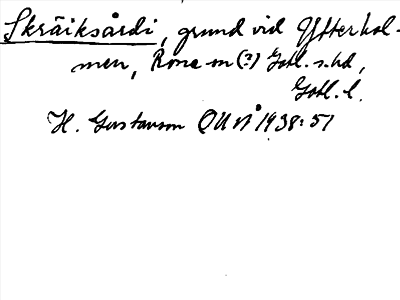 Skräiksårdi, grund vid Ytterhol-
men, Rone sn (?) Gotl. s. hd,
Gotl. l.
H. Gustavson OUÅ 1938:51